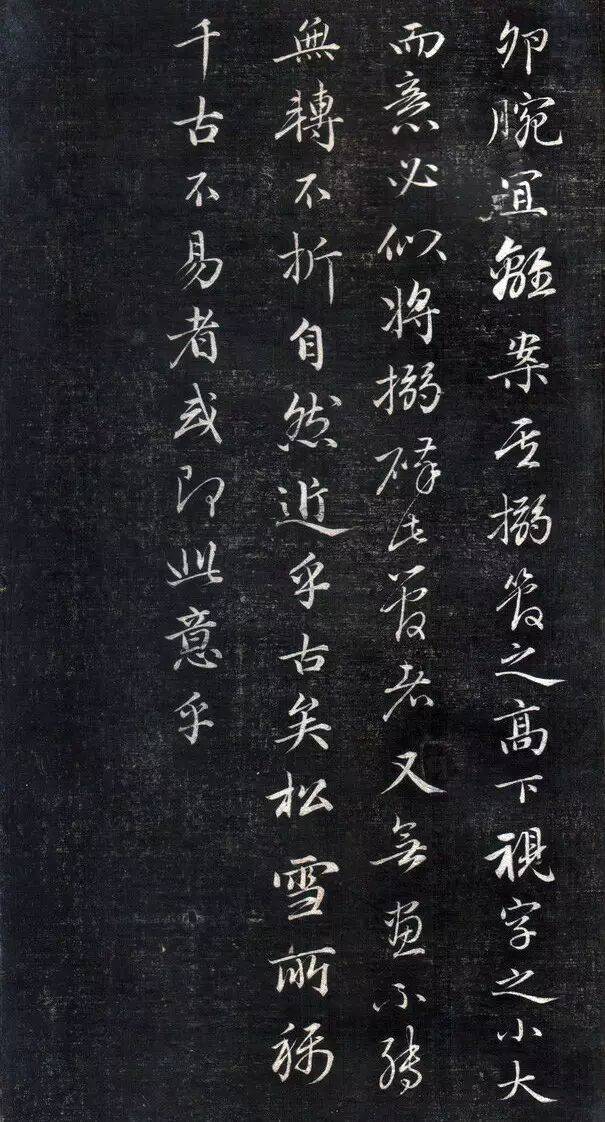 卯腕宜離案至搦管之高下視字之小大
而意必似將搦碎此管者又無畫不轉
無轉不折自然近乎古矣松雪所稱
千古不易者或即此意乎